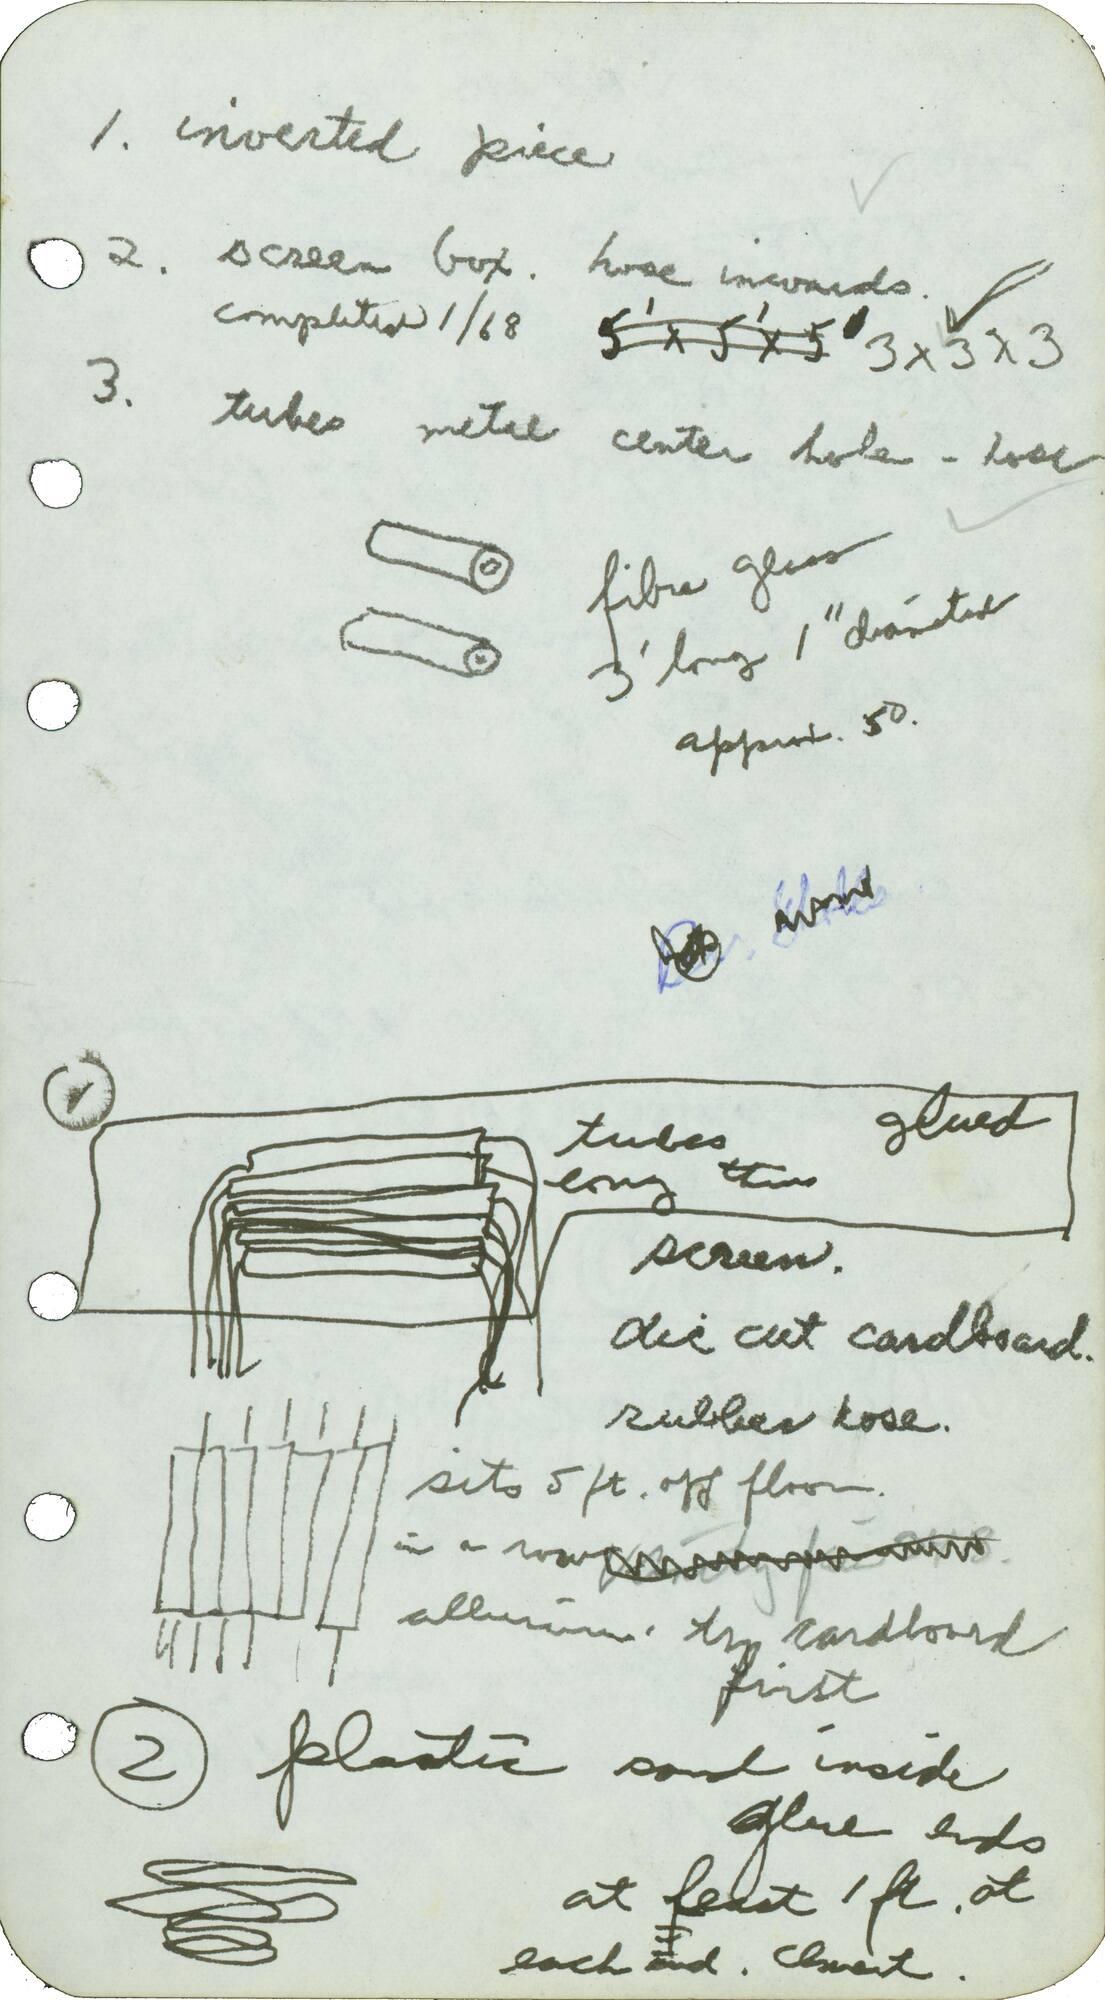 1. inverted piece
2. screen box. hose inwards.
completed 1/68 5' x 5' x 5' 3 x 3 x 3
3. tubes metal center hole - hose
fibre glass
3' long 1" diameter
approx. 50.
Dr.
tubes glued
long thin
screen.
die cut cardboard.
rubber hose.
sits 5 ft. off floor.
in a row
alluminum. try cardboard
first
2 plastic sand inside
glue ends
at least 1 ft. at
each end. cement.